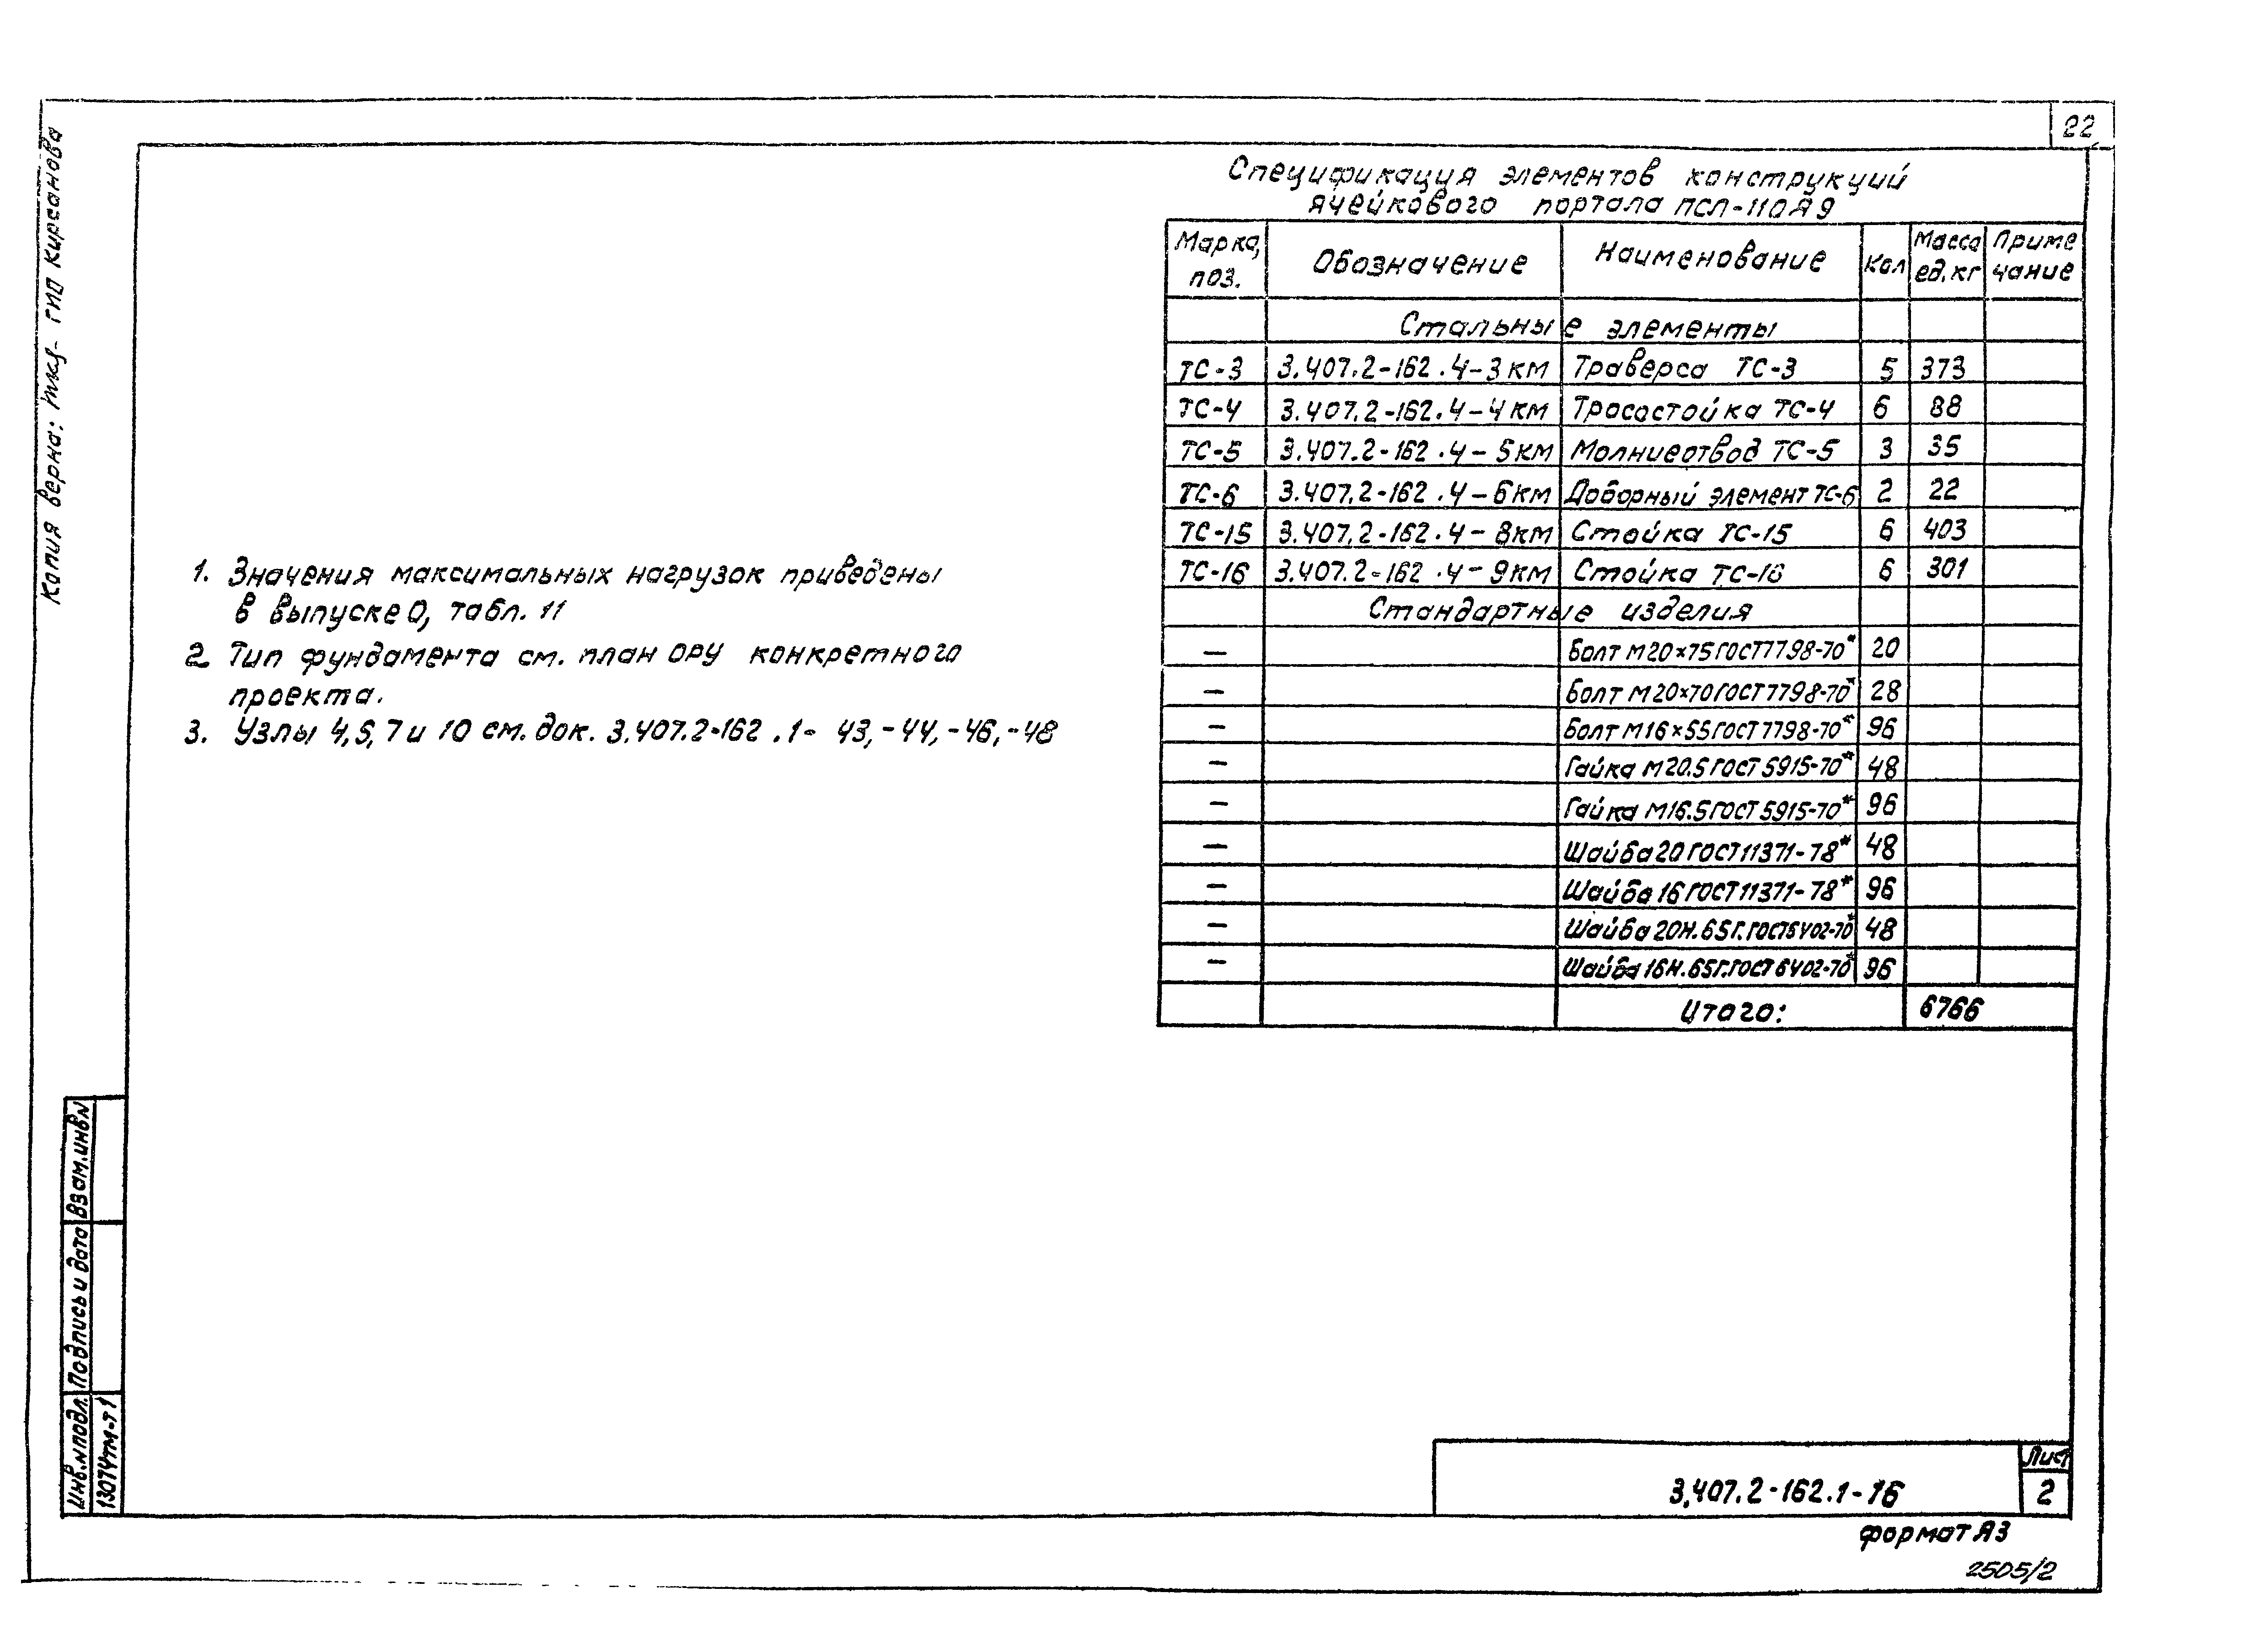 22
Копия верна: ГИП Кирсанова
Спецификация элементов конструкций
ячейкового портала ПСЛ-110Я9
Марка, поз. | Обозначение | Наименование | Кол | Масса ед. кг | Приме чание
Стальные элементы
ТС-3 | 3.407.2-162.4-3КМ | Траверса ТС-3 | 5 | 373
ТС-4 | 3.407.2-162.4-4КМ | Тросостойка ТС-4 | 6 | 88
ТС-5 | 3.407.2-162.4-5КМ | Молниеотвод ТС-5 | 3 | 35
ТС-6 | 3.407.2-162.4-6КМ | Доборный элемент ТС-6 | 2 | 22
ТС-15 | 3.407.2-162.4-8КМ | Стойка ТС-15 | 6 | 403
ТС-16 | 3.407.2-162.4-9КМ | Стойка ТС-16 | 6 | 301
Стандартные изделия
— | Болт М20×75 ГОСТ 7798-70* | 20
— | Болт М20×70 ГОСТ 7798-70* | 28
— | Болт М16×55 ГОСТ 7798-70* | 96
— | Гайка М20.5 ГОСТ 5915-70* | 48
— | Гайка М16.5 ГОСТ 5915-70* | 96
— | Шайба 20 ГОСТ 11371-78* | 48
— | Шайба 16 ГОСТ 11371-78* | 96
— | Шайба 20Н.65Г. ГОСТ 6402-70* | 48
— | Шайба 16Н.65Г. ГОСТ 6402-70* | 96
Итого: | 6766
1. Значения максимальных нагрузок приведены
в выпуске 0, табл. 11
2 Тип фундамента см. план ОРУ конкретного
проекта.
3. Узлы 4, 5, 7 и 10 см. док. 3.407.2-162.1- 43, -44, -46, -48
Взам.инв№
Подпись и дата
Инв.№подл.
13074тм-т1
3.407.2-162.1-16
Лист
2
Формат А3
2505/2